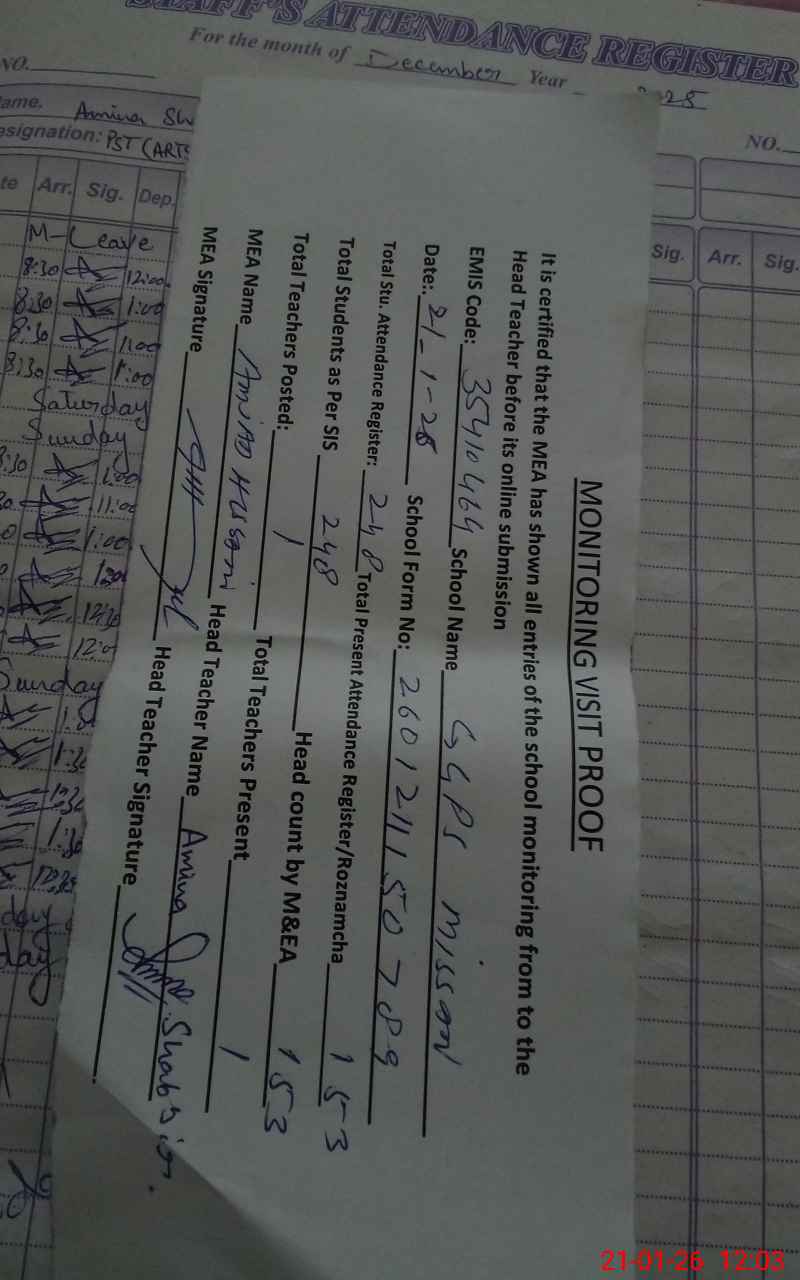 STAFF'S ATTENDANCE REGISTER
For the month of December Year 2025
NO.
Name. Amina Sh
Designation: PST (ARTS
NO.
te Arr. Sig. Dep.
Sig. Arr. Sig.
M-Leave
8:30 12:00
8:30 1:00
8:30 1:00
8:30 1:00
Saturday
Sunday
8:30 1:00
11:00
1:00
12:30
12:0
Sunday
MONITORING VISIT PROOF
It is certified that the MEA has shown all entries of the school monitoring from to the
Head Teacher before its online submission
EMIS Code: 35410464 School Name GGPS MISSAN
Date:. 21-1-26 School Form No: 2601211150789
Total Stu. Attendance Register: 248 Total Present Attendance Register/Roznamcha 153
Total Students as Per SIS 248 Head count by M&EA 153
Total Teachers Posted: 1 Total Teachers Present 1
MEA Name Head Teacher Name Amina Shabbir.
MEA Signature Head Teacher Signature
21-01-26 12:03